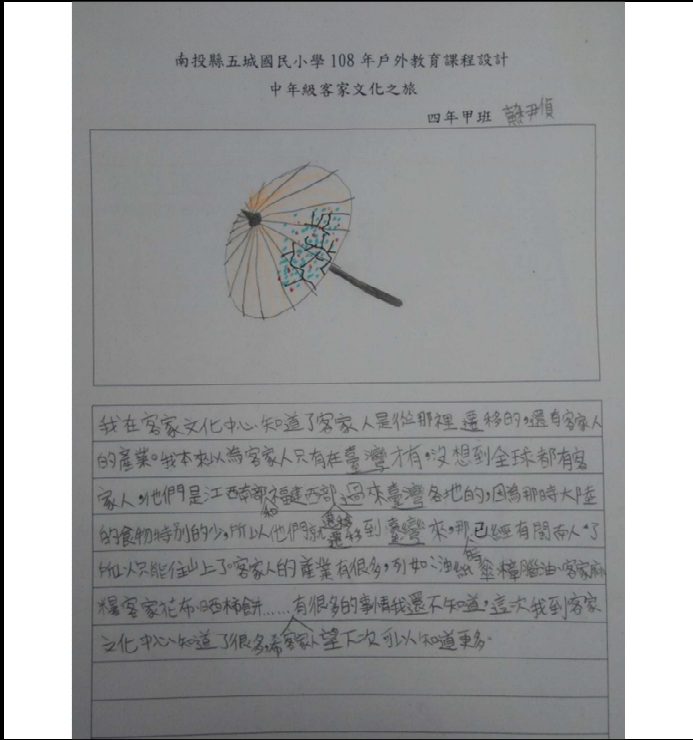 南投縣五城國民小學 108 年戶外教育課程設計
中年級客家文化之旅
四年甲班 尹傎
我在客家文化中心知道了客家人是從那裡遷移的,還有客家人
的產業。我本來以為客家人只有在臺灣才有,沒想到全球都有客
家人,他們是江西南部和福建西部過來臺灣各地的,因為那時大陸
的食物特別的少,所以他們就遷移到臺灣來,那已經有閩南人了
所以只能住山上了。客家人的產業有很多,列如:油紙傘、樟腦油、客家麻
糬、客家花布、晒柿餅……有很多的事情我還不知道,這次我到客家
文化中心知道了很多客家人希望下次可以知道更多。